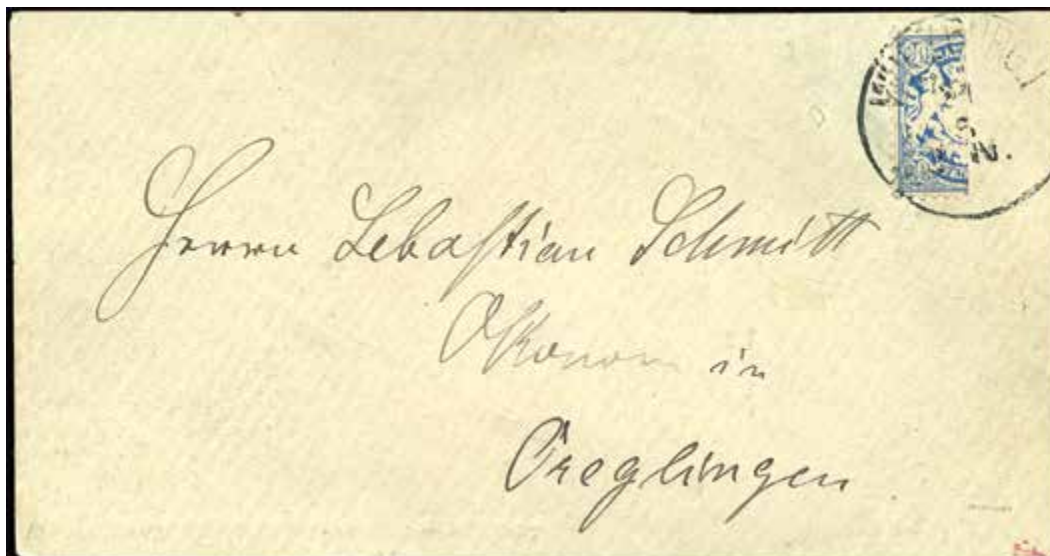 20
Herrn Sebastian Schmitt
Ökonom in
Creglingen